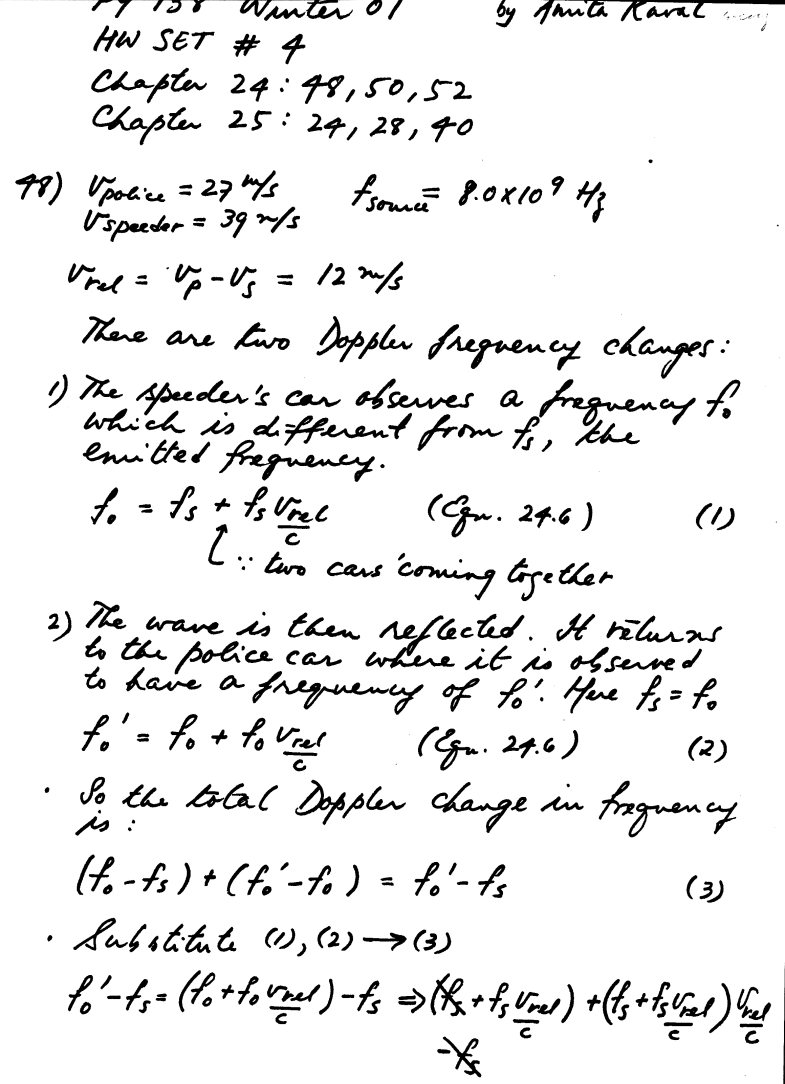 PY 138 Winter 01 by Amita Kaval
HW SET # 4
Chapter 24: 48, 50, 52
Chapter 25: 24, 28, 40
48) Vpolice = 27 m/s fsource = 8.0x10⁹ Hz
Vspeeder = 39 m/s
Vrel = Vp - Vs = 12 m/s
There are two Doppler frequency changes:
1) The speeder's car observes a frequency fo
which is different from fs, the
emitted frequency.
fo = fs + fs Vrel/c (Eqn. 24.6) (1)
∵ two cars 'coming together
2) The wave is then reflected. It returns
to the police car where it is observed
to have a frequency of fo'. Here fs = fo
fo' = fo + fo Vrel/c (Eqn. 24.6) (2)
· So the total Doppler change in frequency
is :
(fo - fs) + (fo' - fo) = fo' - fs (3)
· Substitute (1), (2) → (3)
fo' - fs = (fo + fo Vrel/c) - fs ⇒ (fs + fs Vrel/c) + (fs + fs Vrel/c) Vrel/c
- fs